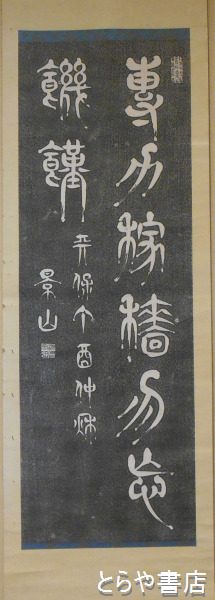 專力稼穡勿忘
饑饉
天保丁酉仲秋
景山
とらや書店